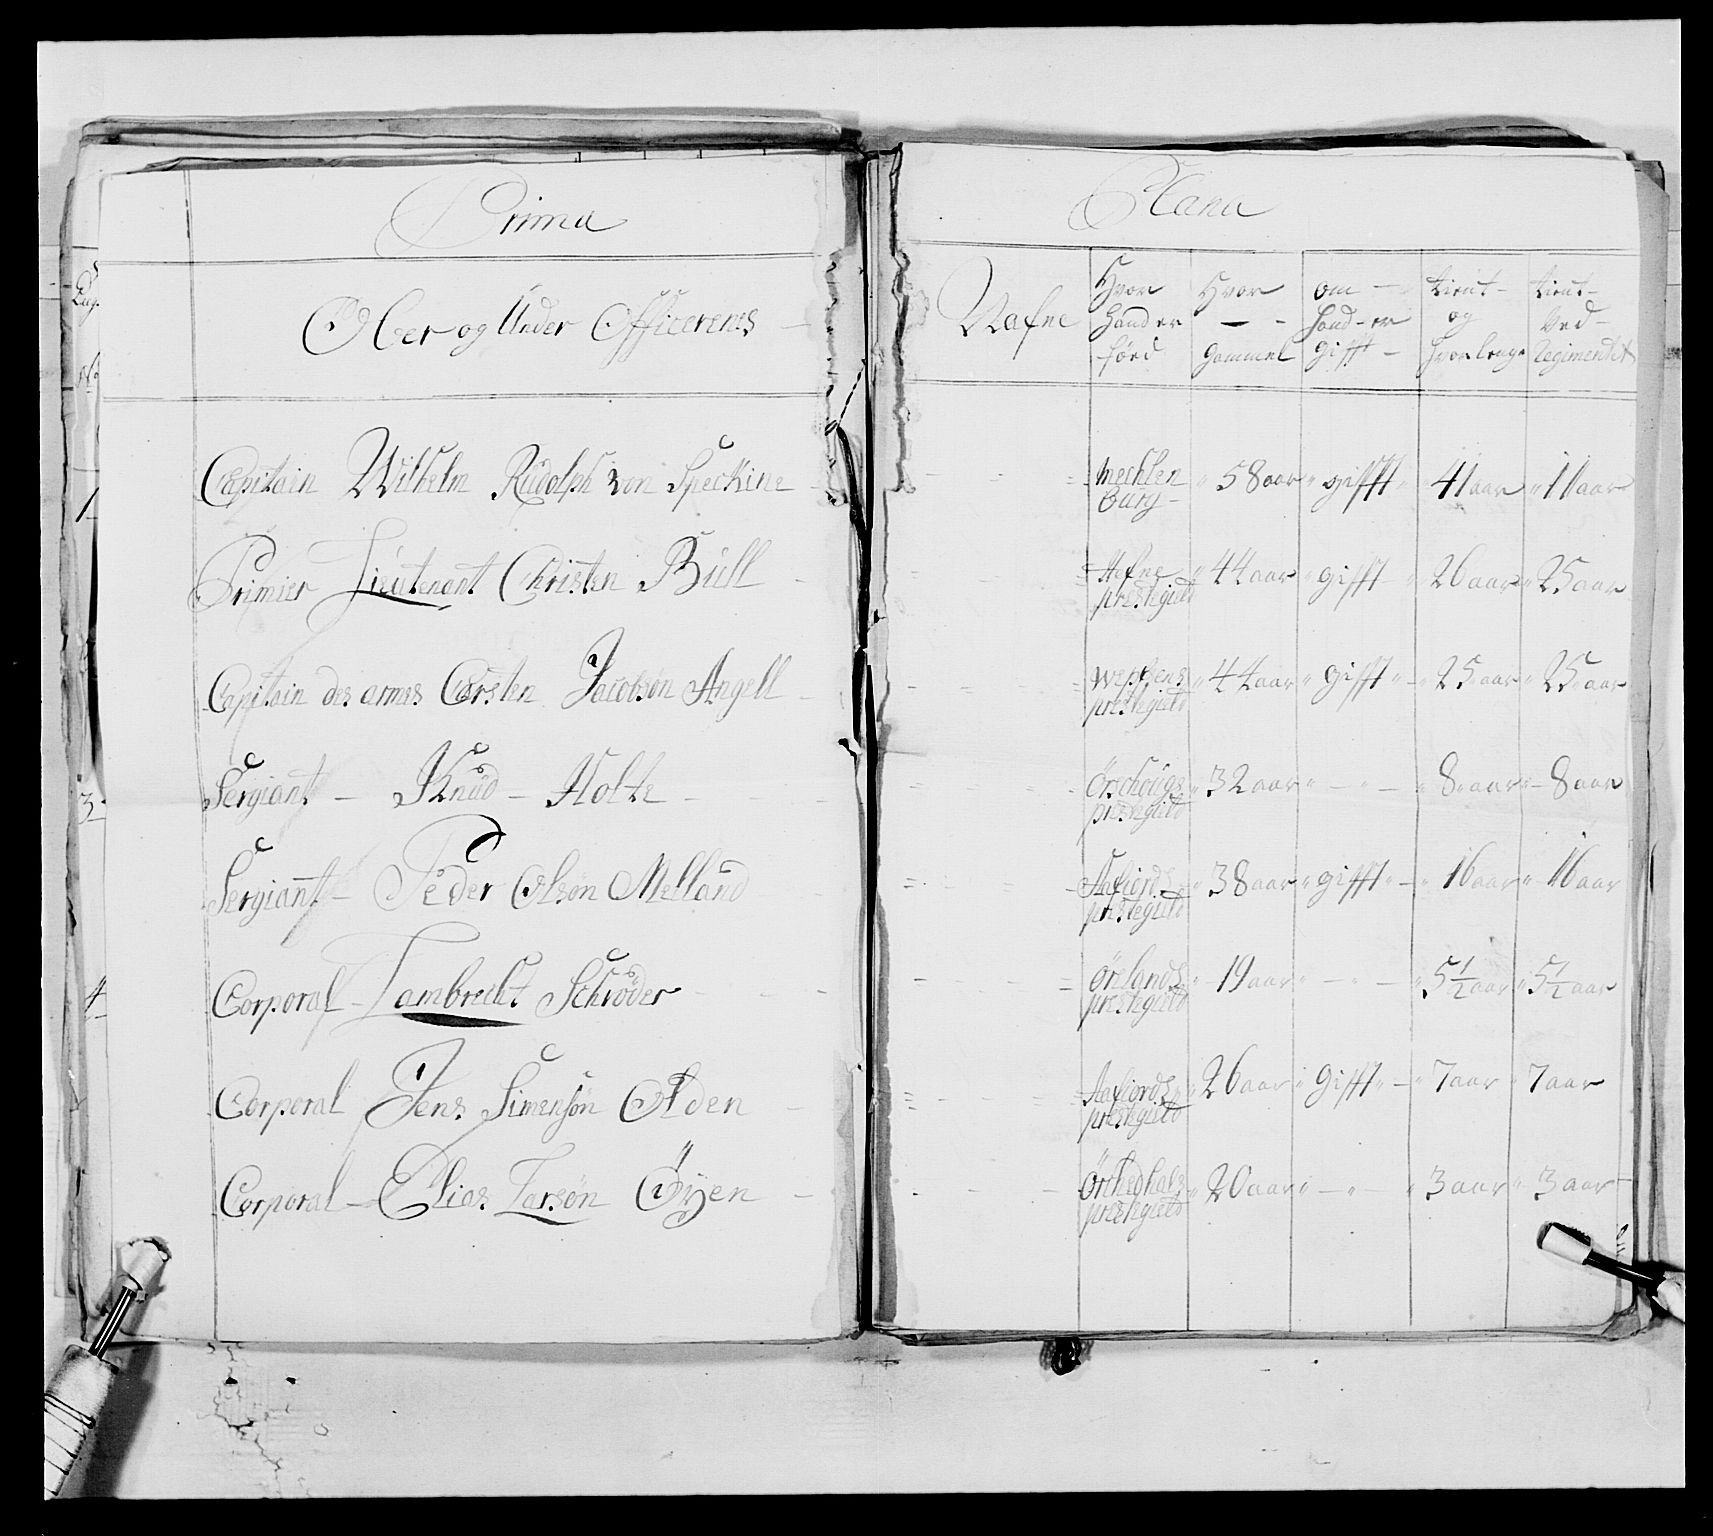 Prima Plana
Ober og Under Officerernes Nafne
Hvor hand er föed
Hvor gammel
om hand er gifft
tient og hvor lenge
tient ved Regimentet
Capitain Wilhelm Rudolph von Speckine Mechlenburg 58 aar gifft 41 aar 11 aar
Primier Lieutenant Christen Büll Hefne prestegield 44 aar gifft 26 aar 25 aar
Capitain des armes Carsten Jacobsön Angell prestegield 44 aar gifft 25 aar 25 aar
Sergiant Knüd Holte prestegield 32 aar 8 aar 8 aar
3
Sergiant Peder Olsön Melland Aafiords prestegield 38 aar gifft 16 aar 16 aar
4 Corporal Lambrecht Schröder Örelands prestegield 19 aar 5 1/2 aar 5 1/2 aar
Corporal Jens Simensön Olden Aafiords prestegield 26 aar gifft 7 aar 7 aar
Corporal Elias Larsön Öyen Örkedhals prestegield 20 aar 3 aar 3 aar